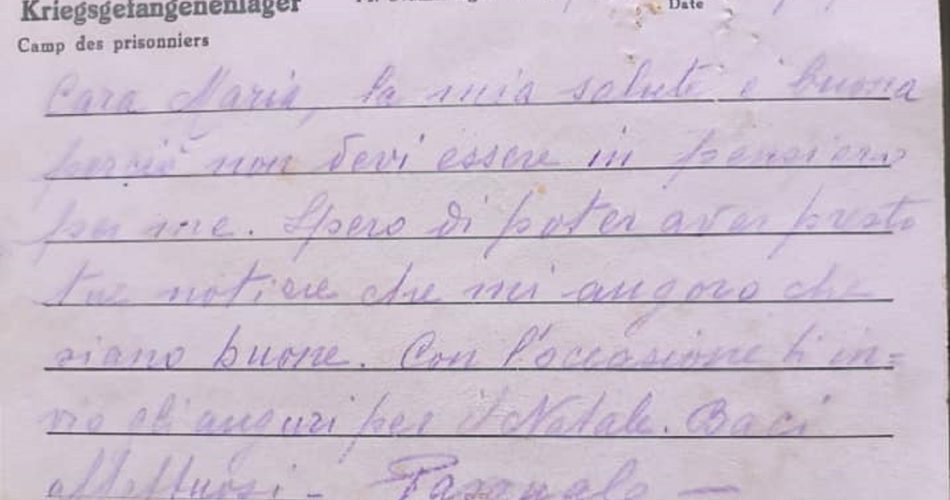 Kriegsgefangenenlager
Date
Camp des prisonniers
Cara Maria, la mia salute è buona
perciò non devi essere in pensiero
per me. Spero di poter aver presto
tue notizie che mi auguro che
siano buone. Con l'occasione ti in=
vio gli auguri per il Natale. Baci
affettuosi - Pasquale —